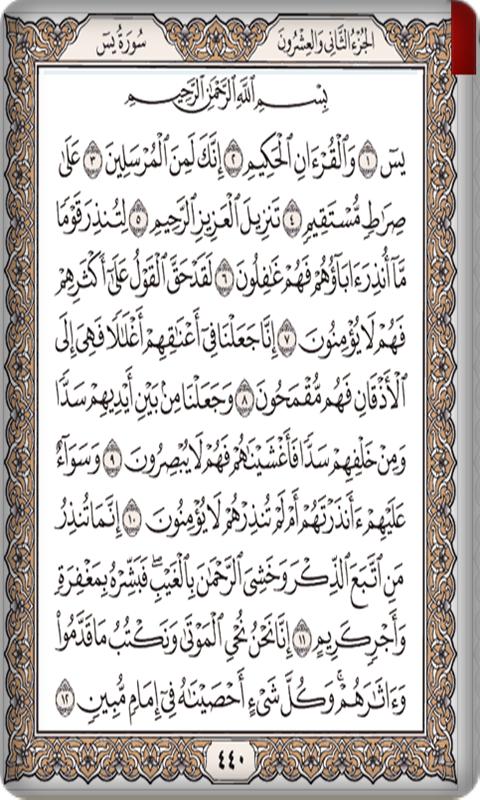 الجزء الثاني والعشرون
سورة يس
بِسْمِ ٱللَّهِ ٱلرَّحْمَٰنِ ٱلرَّحِيمِ
يسٓ ١ وَٱلْقُرْءَانِ ٱلْحَكِيمِ ٢ إِنَّكَ لَمِنَ ٱلْمُرْسَلِينَ ٣ عَلَىٰ
صِرَٰطٍ مُّسْتَقِيمٍ ٤ تَنزِيلَ ٱلْعَزِيزِ ٱلرَّحِيمِ ٥ لِتُنذِرَ قَوْمًا
مَّآ أُنذِرَ ءَابَآؤُهُمْ فَهُمْ غَٰفِلُونَ ٦ لَقَدْ حَقَّ ٱلْقَوْلُ عَلَىٰٓ أَكْثَرِهِمْ
فَهُمْ لَا يُؤْمِنُونَ ٧ إِنَّا جَعَلْنَا فِىٓ أَعْنَٰقِهِمْ أَغْلَٰلًا فَهِىَ إِلَى
ٱلْأَذْقَانِ فَهُم مُّقْمَحُونَ ٨ وَجَعَلْنَا مِنۢ بَيْنِ أَيْدِيهِمْ سَدًّا
وَمِنْ خَلْفِهِمْ سَدًّا فَأَغْشَيْنَٰهُمْ فَهُمْ لَا يُبْصِرُونَ ٩ وَسَوَآءٌ
عَلَيْهِمْ ءَأَنذَرْتَهُمْ أَمْ لَمْ تُنذِرْهُمْ لَا يُؤْمِنُونَ ١٠ إِنَّمَا تُنذِرُ
مَنِ ٱتَّبَعَ ٱلذِّكْرَ وَخَشِىَ ٱلرَّحْمَٰنَ بِٱلْغَيْبِ ۖ فَبَشِّرْهُ بِمَغْفِرَةٍ
وَأَجْرٍ كَرِيمٍ ١١ إِنَّا نَحْنُ نُحْىِ ٱلْمَوْتَىٰ وَنَكْتُبُ مَا قَدَّمُوا۟
وَءَاثَٰرَهُمْ ۚ وَكُلَّ شَىْءٍ أَحْصَيْنَٰهُ فِىٓ إِمَامٍ مُّبِينٍ ١٢
٤٤٠